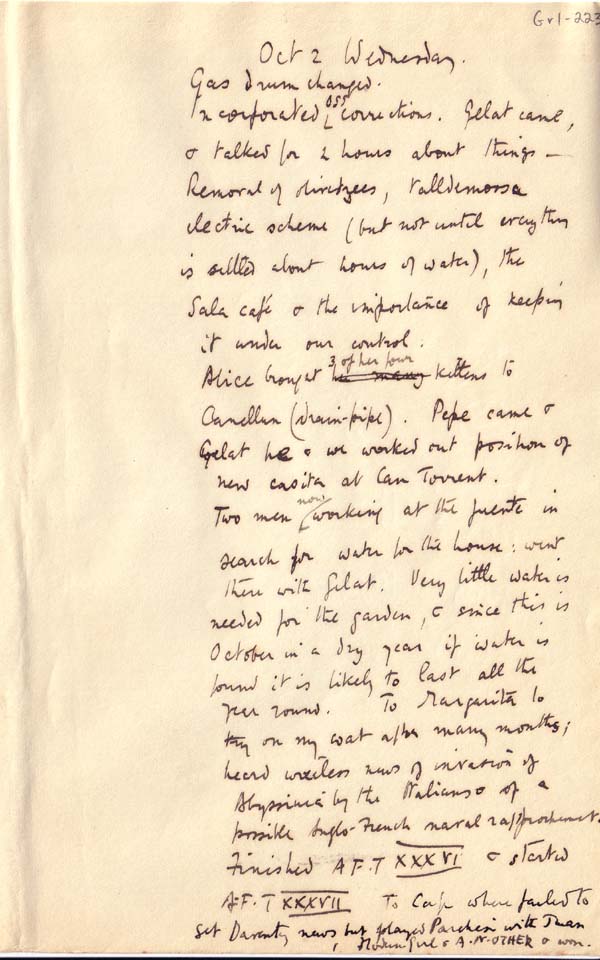 Gr1-223
Oct 2 Wednesday.
Gas drum changed.
Incorporated OSS corrections. Gelat came,
& talked for 2 hours about things —
Removal of , Valldemossa
electric scheme (but not until everything
is settled about hours of water), the
Sala café & the importance of keeping
it under our control.
3 of her four
Alice brought her many kittens to
Canellun (drain-pipe). Pepe came &
Gelat he & we worked out position of
new casita at Can Torrent.
now
Two men working at the fuente in
search for water for the house: went
there with Gelat. Very little water is
needed for the garden, & since this is
October in a dry year if water is
found it is likely to last all the
year round. To Margarita to
try on my coat after many months;
heard wireless news of invasion of
Abyssinia by the Italians & of a
possible Anglo-French naval rapprochement.
Finished A.F.T XXXVI & started
A.F.T XXXVII To Café where failed to
get Daventry news but played Parchesi with Juan
, Girl & A.N. OTHER & won.